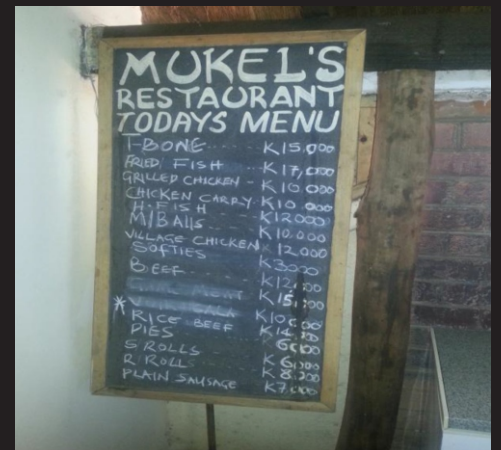 MUKEL'S
RESTAURANT
TODAYS MENU
T-BONE K15,000
FRIED FISH K17,000
GRILLED CHICKEN - K10 000
CHICKEN CARRY - K10.000
H. FISH K12000
M/BALLS K10,000
VILLAGE CHICKEN K12000
SOFTIES K3000
BEEF
MEAT
RICE BEEF
PIES
S ROLLS
R ROLLS
PLAIN SAUSAGE K7.000